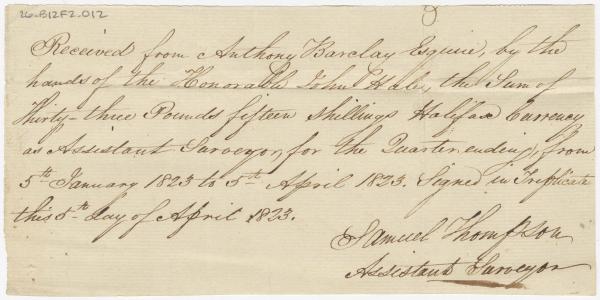 26-B12F2-012
Received from Anthony Barclay Esquire, by the
hands of the Honorable John Hale, the Sum of
Thirty-three Pounds fifteen Shillings Halifax Currency
as Assistant Surveyor, for the Quarter ending, from
5th January 1823 to 5th April 1823. Signed in Triplicate
this 5th Day of April 1823.
Samuel Thompson
Assistant Surveyor